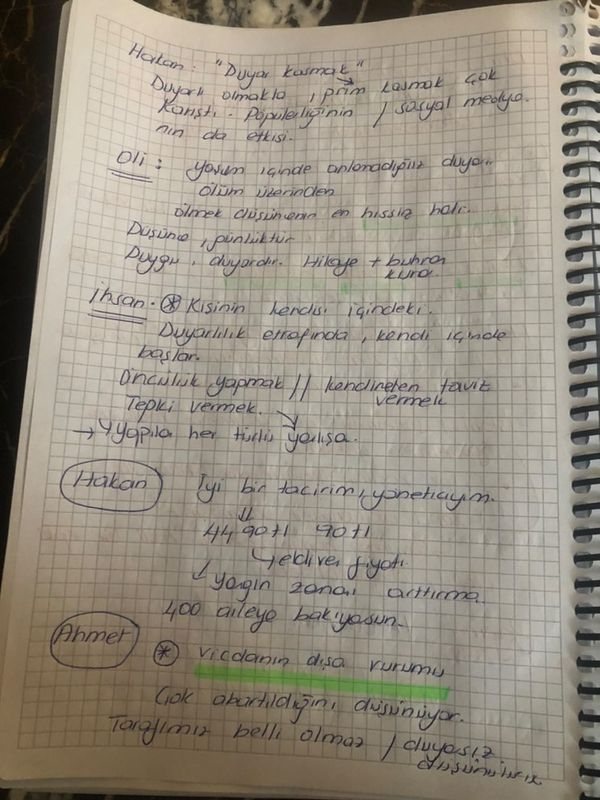 Hakan: "Duyar kasmak"
Duyarlı olmakla, prim kasmak çok
karıştı. Popülerliğinin / sosyal medya
nın da etkisi.
Oli: yaşam içinde anlamadığız duya..
ölüm üzerinden
ölmek düşüncenin en hissiz hali.
Düşünce, günlüktür
Duygu, duyardır. Hikaye + buhran
İhsan. * Kişinin kendisi içindeki.
Duyarlılık etrafında, kendi içinde
başlar.
Öncülük yapmak // kendineten taviz
vermek
Tepki vermek.
→ yapıla her türlü yanlışa.
Hakan İyi bir tacirim, yöneticiyim.
90tl
eldiven fiyatı.
yangın zamanı arttırma
400 aileye bakıyosun.
Ahmet * vicdanın dışa vurumu
Çok abartıldığını düşünüyor.
Tarafımız belli olmaz / duyarsız